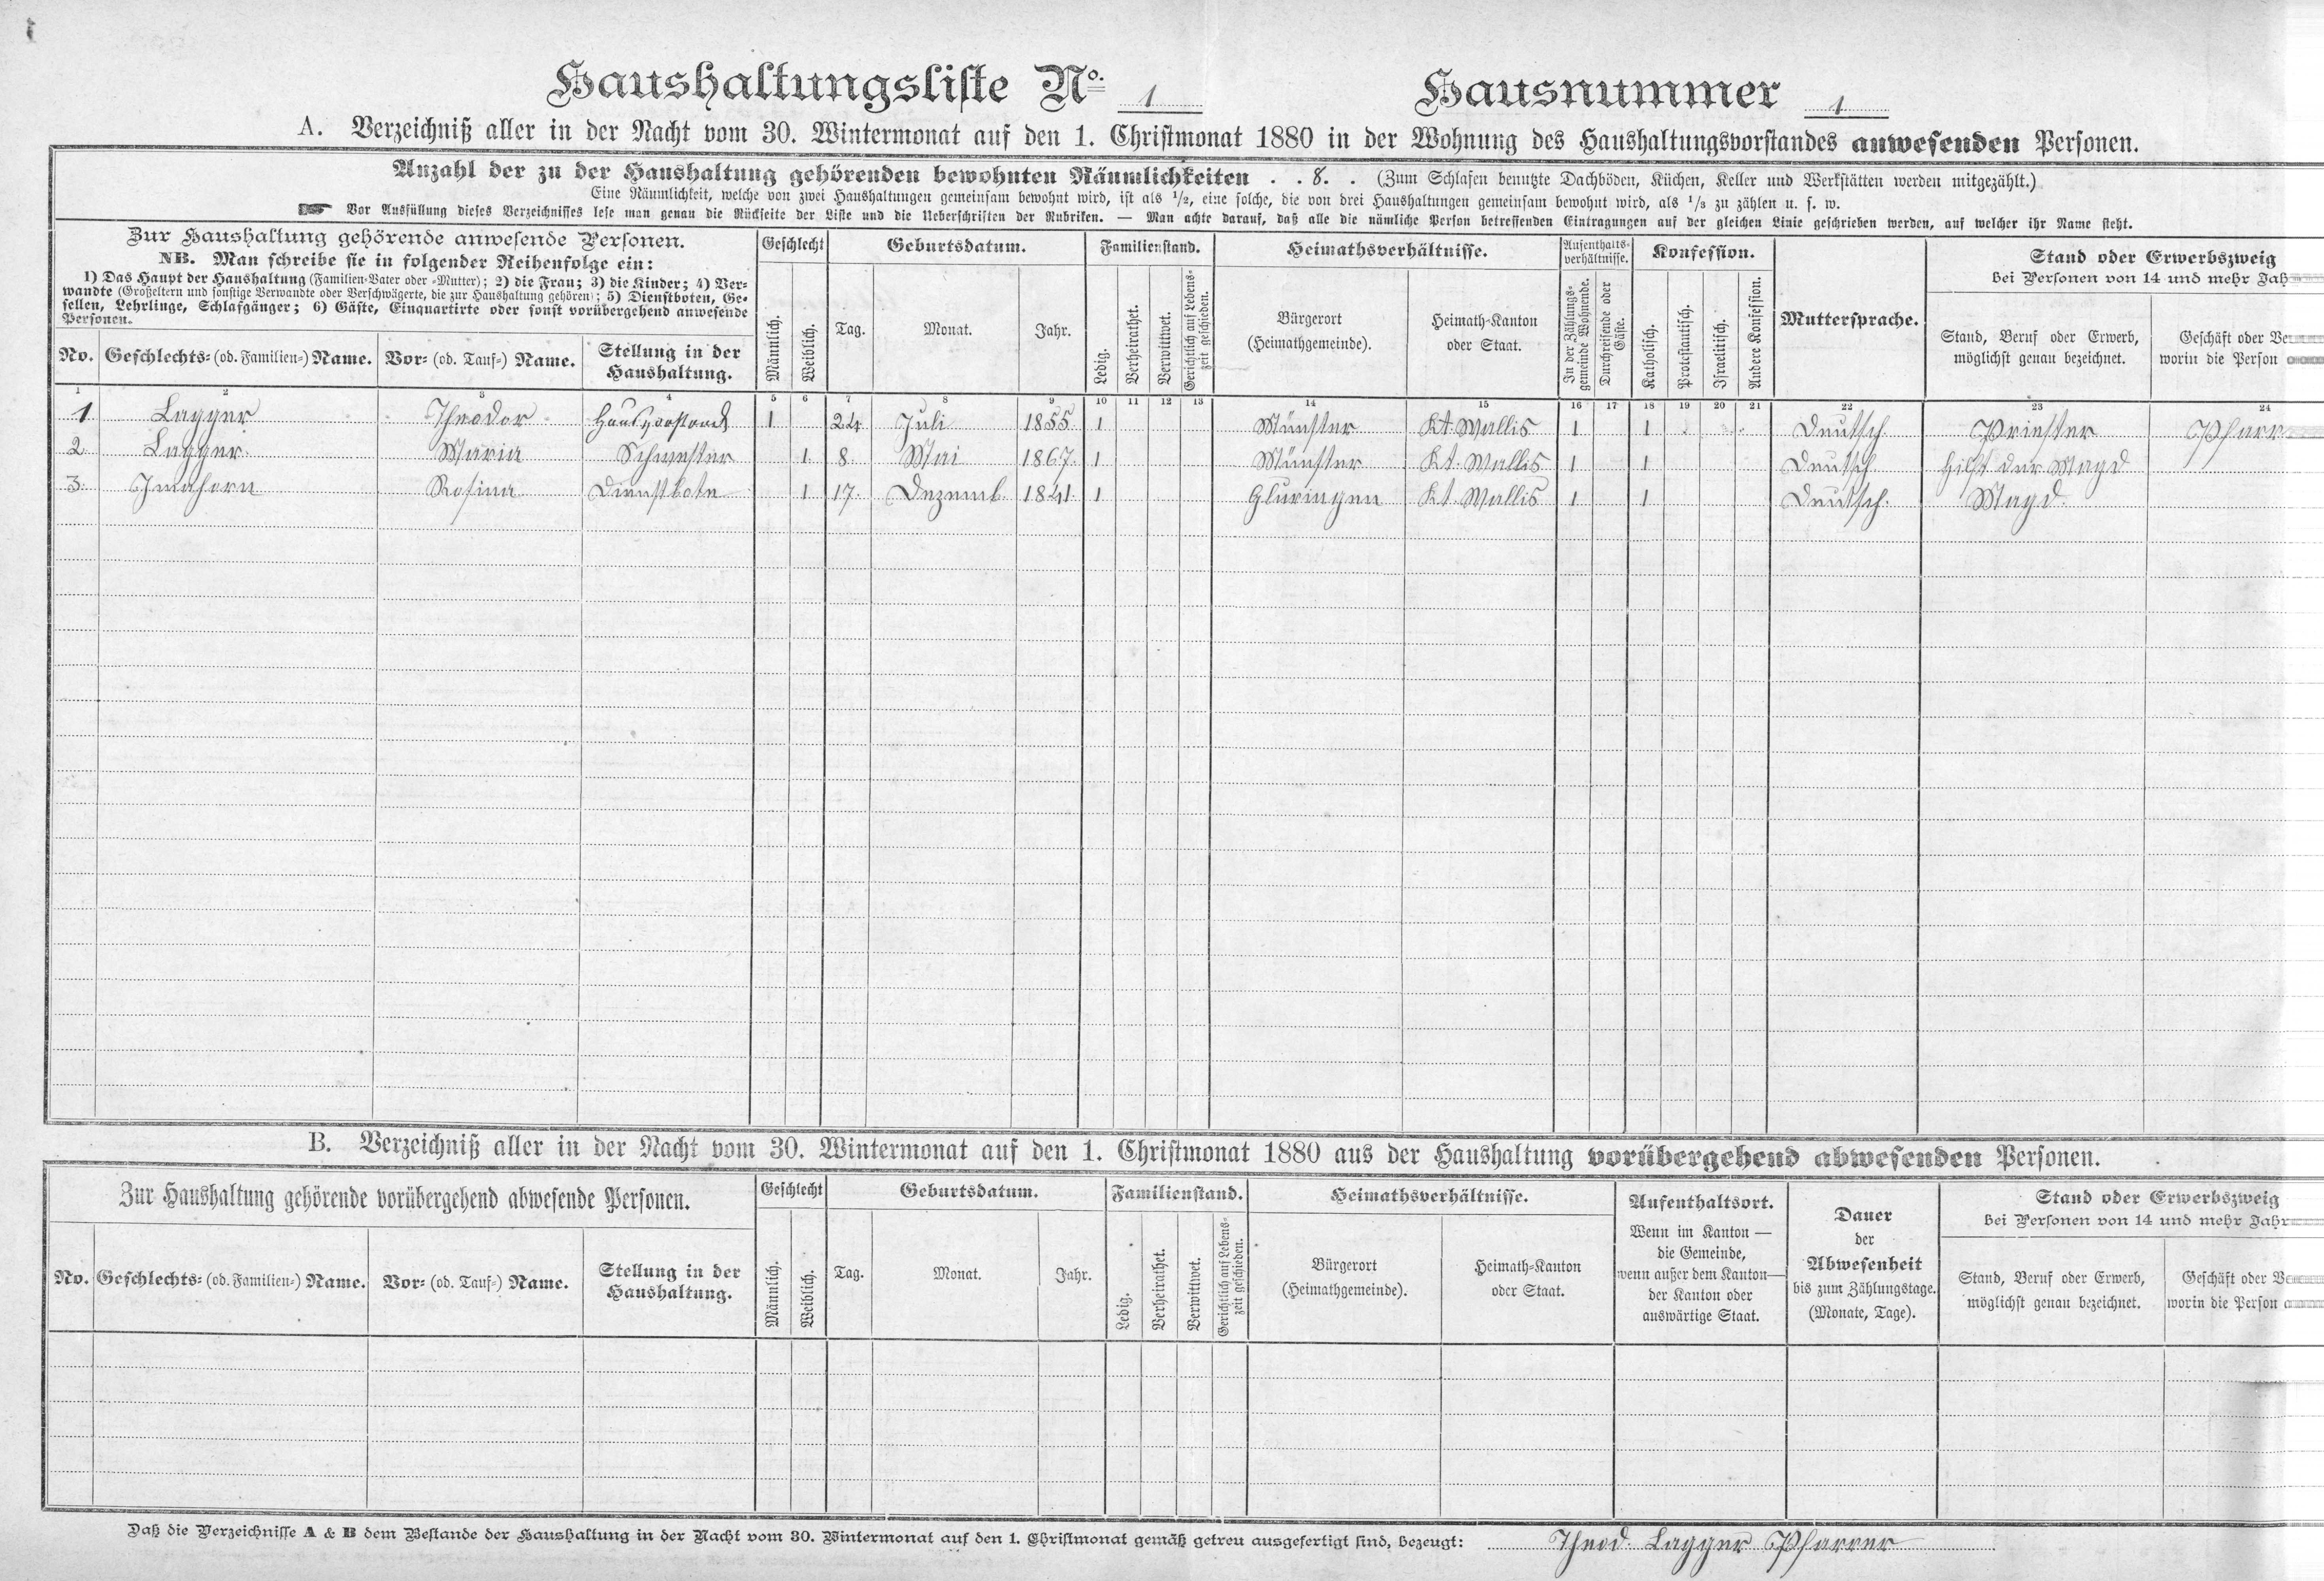 Haushaltungsliste No. 1 Hausnummer 1
A. Verzeichniß aller in der Nacht vom 30. Wintermonat auf den 1. Christmonat 1880 in der Wohnung des Haushaltungsvorstandes anwesenden Personen.
Anzahl der zu der Haushaltung gehörenden bewohnten Räumlichkeiten . . 8. . (Zum Schlafen benutzte Dachböden, Küchen, Keller und Werkstätten werden mitgezählt.)
Eine Räumlichkeit, welche von zwei Haushaltungen gemeinsam bewohnt wird, ist als 1/2, eine solche, die von drei Haushaltungen gemeinsam bewohnt wird, als 1/3 zu zählen u. s. w.
☛ Vor Ausfüllung dieses Verzeichnisses lese man genau die Rückseite der Liste und die Ueberschriften der Rubriken. — Man achte darauf, daß alle die nämliche Person betreffenden Eintragungen auf der gleichen Linie geschrieben werden, auf welcher ihr Name steht.
Zur Haushaltung gehörende anwesende Personen.
NB. Man schreibe sie in folgender Reihenfolge ein:
1) Das Haupt der Haushaltung (Familien-Vater oder -Mutter); 2) die Frau; 3) die Kinder; 4) Ver-
wandte (Großeltern und sonstige Verwandte oder Verschwägerte, die zur Haushaltung gehören); 5) Dienstboten, Ge-
sellen, Lehrlinge, Schlafgänger; 6) Gäste, Einquartirte oder sonst vorübergehend anwesende
Personen.
No. Geschlechts- (od. Familien-) Name. Vor- (od. Tauf-) Name. Stellung in der
Haushaltung.
Geschlecht
Männlich. Weiblich.
Geburtsdatum.
Tag. Monat. Jahr.
Familienstand.
Ledig. Verheirathet. Verwittwet. Gerichtlich auf Lebens-
zeit geschieden.
Heimathsverhältnisse.
Bürgerort
(Heimathgemeinde).
Heimath-Kanton
oder Staat.
Aufenthalts-
verhältnisse.
In der Zählungs-
gemeinde Wohnende.
Durchreisende oder
Gäste.
Konfession.
Katholisch. Protestantisch. Israelitisch. Andere Konfession.
Muttersprache.
Stand oder Erwerbszweig
bei Personen von 14 und mehr Jah
Stand, Beruf oder Erwerb,
möglichst genau bezeichnet.
Geschäft oder
worin die Person
1 2 3 4 5 6 7 8 9 10 11 12 13 14 15 16 17 18 19 20 21 22 23 24
1 Lagger Theodor Hausvorstand 1 24 Juli 1855 1 Münster Kt Wallis 1 1 Deutsch Priester Pfarr
2 Lagger Maria Schwester 1 8. Mai 1867. 1 Münster Kt. Wallis 1 1 Deutsch Hilft der Magd
3. Imahorn Rosina Dienstbote 1 17. Dezemb. 1841. 1 Gluringen Kt. Wallis 1 1 Deutsch. Magd.
B. Verzeichniß aller in der Nacht vom 30. Wintermonat auf den 1. Christmonat 1880 aus der Haushaltung vorübergehend abwesenden Personen.
Zur Haushaltung gehörende vorübergehend abwesende Personen.
No. Geschlechts- (od. Familien-) Name. Vor- (od. Tauf-) Name. Stellung in der
Haushaltung.
Geschlecht
Männlich. Weiblich.
Geburtsdatum.
Tag. Monat. Jahr.
Familienstand.
Ledig. Verheirathet. Verwittwet. Gerichtlich auf Lebens-
zeit geschieden.
Heimathsverhältnisse.
Bürgerort
(Heimathgemeinde).
Heimath-Kanton
oder Staat.
Aufenthaltsort.
Wenn im Kanton —
die Gemeinde,
wenn außer dem Kanton—
der Kanton oder
auswärtige Staat.
Dauer
der
Abwesenheit
bis zum Zählungstage.
(Monate, Tage).
Stand oder Erwerbszweig
bei Personen von 14 und mehr Jahr
Stand, Beruf oder Erwerb,
möglichst genau bezeichnet.
Geschäft oder
worin die Person
Daß die Verzeichnisse A & B dem Bestande der Haushaltung in der Nacht vom 30. Wintermonat auf den 1. Christmonat gemäß getreu ausgefertigt sind, bezeugt: Theod. Lagger Pfarrer